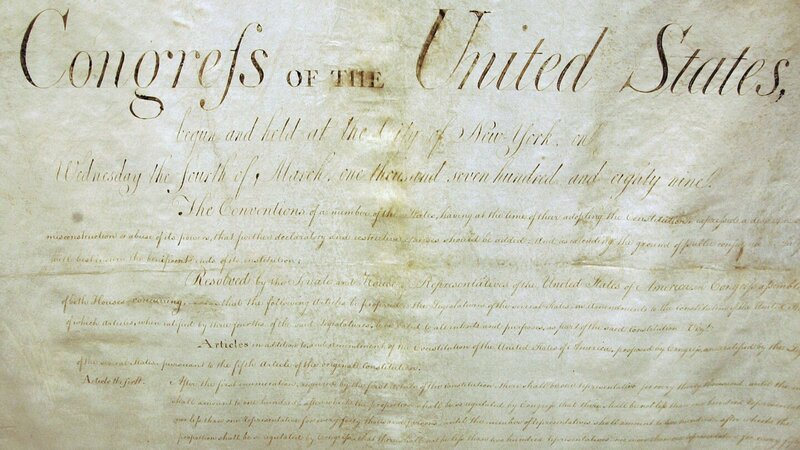 Congreſs OF THE United States,
begun and held at the City of New York, on
Wednesday the fourth of March, one thousand seven hundred and eighty nine.
The Conventions of a number of the States, having at the time of their adopting the Constitution, expressed a
misconstruction or abuse of its powers, that further declaratory and restrictive clauses should be added: And as extending the ground of public confidence
best insure the beneficent ends of its institution;
Resolved by the Senate and House of Representatives of the United States of America, in Congress
of both Houses concurring, that the following Articles be proposed to the Legislatures of the several States, as amendments to the Constitution of the United
of which articles, when ratified by three fourths of the said Legislatures, to be valid to all intents and purposes, as part of the said Constitution
Articles in addition to, and amendment of the Constitution of the United States of America, proposed by Congress, and ratified by the
of the several States, pursuant to the fifth Article of the original Constitution.
Article the first. After the first enumeration required by the first Article of the Constitution, there shall be one Representative for every thirty thousand, until the
shall amount to one hundred, after which the proportion shall be so regulated by Congress, that there shall be not less than one hundred Representatives
less than one Representative for every forty thousand persons, until the number of Representatives shall amount to two hundred, after which the
proportion shall be so regulated by Congress, that there shall not be less than two hundred Representatives, nor more than one Representative for every